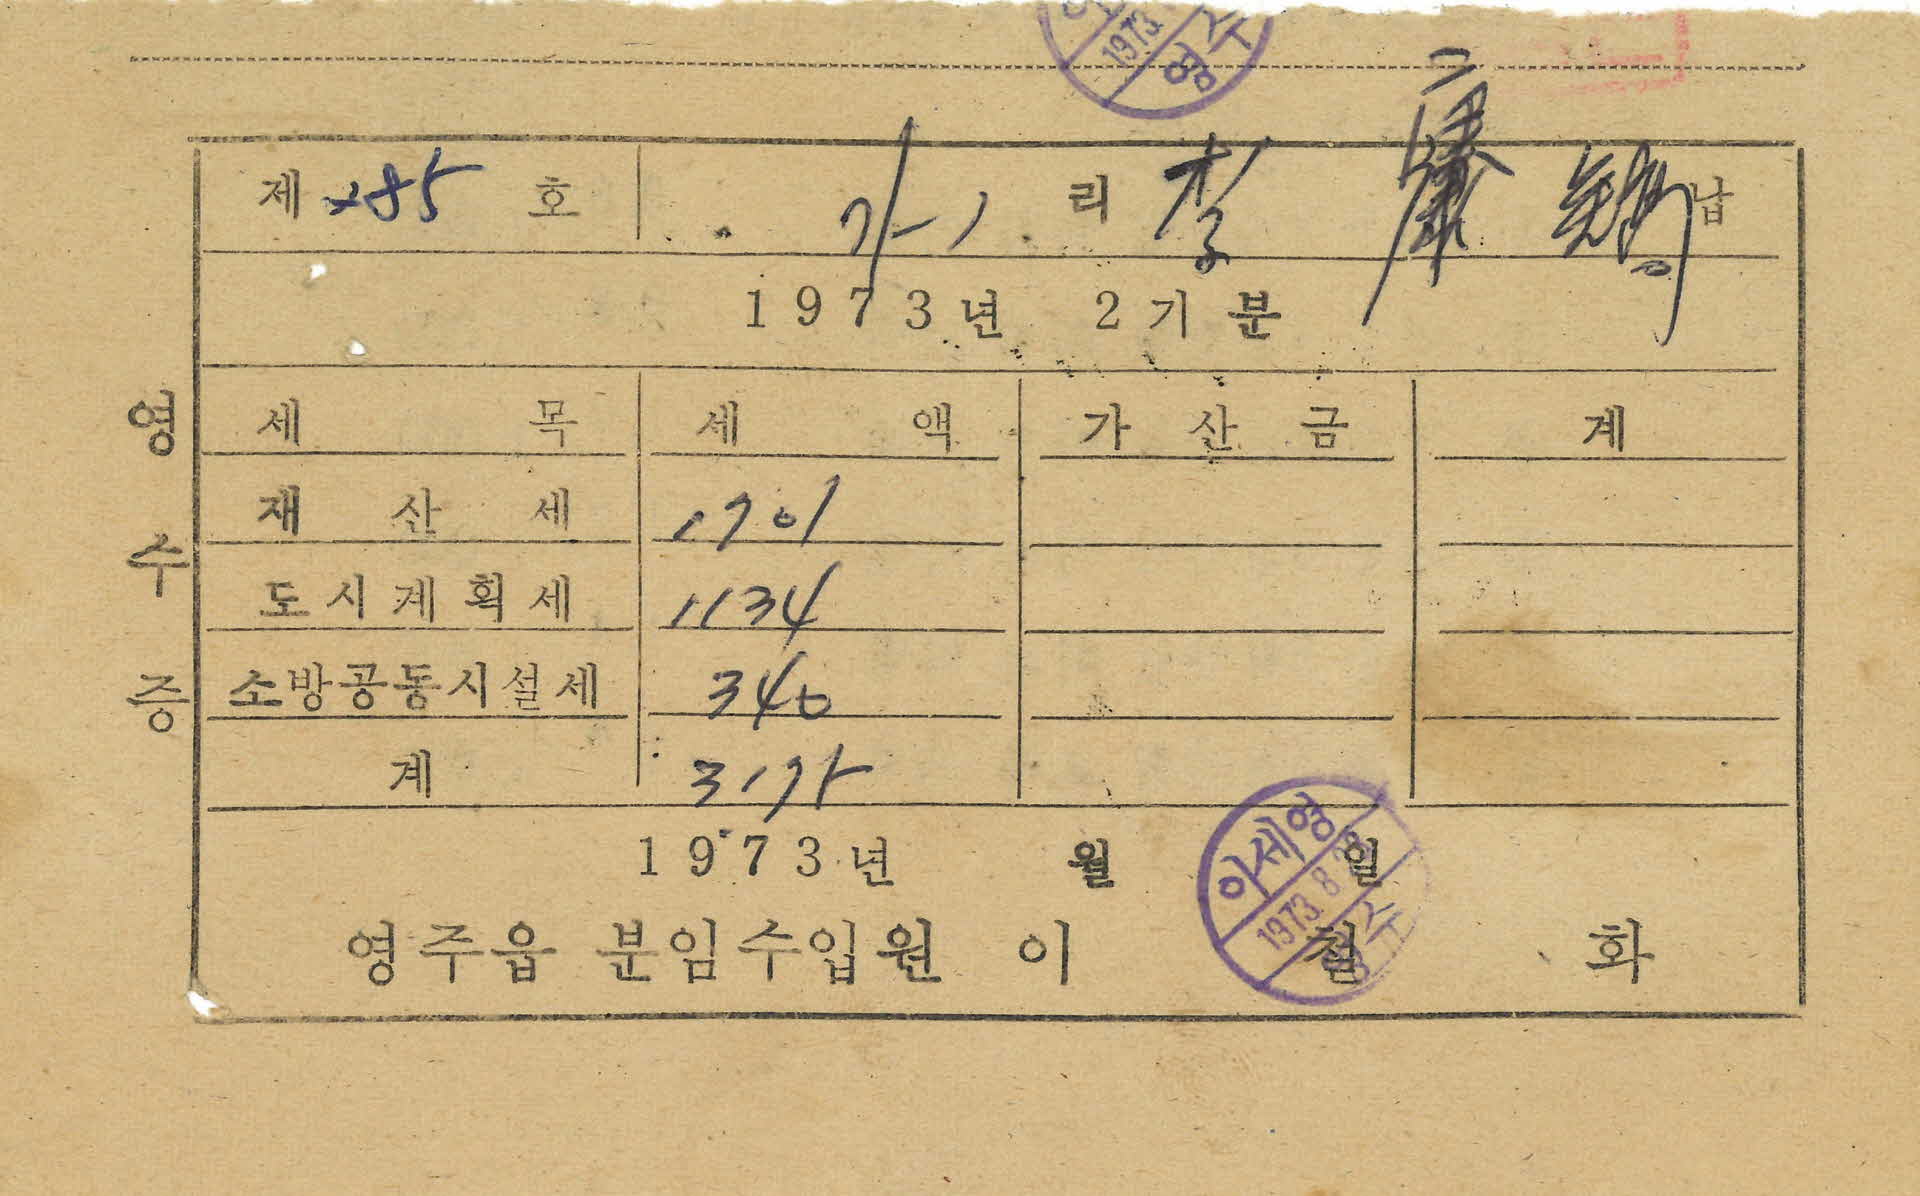 1973
영주
제 285 호 가-1 리 李 납
1973년 2기분
영수증
세목 세액 가산금 계
재산세 1701
도시계획세 1134
소방공동시설세 340
계 3175
1973년 월 일
영주읍 분임수입원 이 철 화
이세영
1973. 8